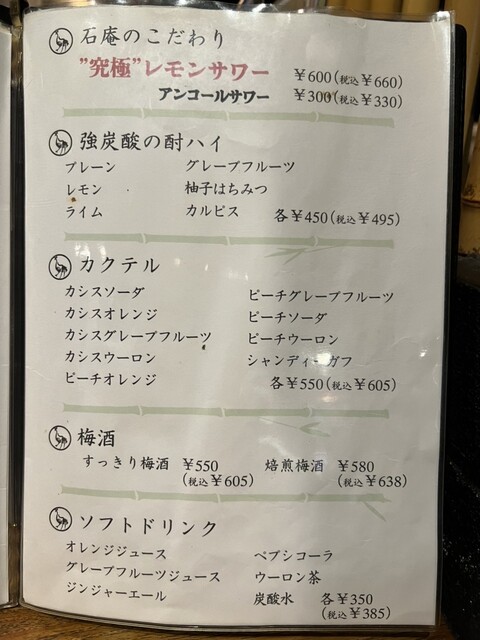 石庵のこだわり
"究極"レモンサワー ￥600(税込￥660)
アンコールサワー ￥300(税込￥330)
強炭酸の酎ハイ
プレーン グレープフルーツ
レモン 柚子はちみつ
ライム カルピス 各￥450(税込￥495)
カクテル
カシスソーダ ピーチグレープフルーツ
カシスオレンジ ピーチソーダ
カシスグレープフルーツ ピーチウーロン
カシスウーロン シャンディーガフ
ピーチオレンジ 各￥550(税込￥605)
梅酒
すっきり梅酒 ￥550 焙煎梅酒 ￥580
(税込￥605) (税込￥638)
ソフトドリンク
オレンジジュース ペプシコーラ
グレープフルーツジュース ウーロン茶
ジンジャーエール 炭酸水 各￥350
(税込￥385)